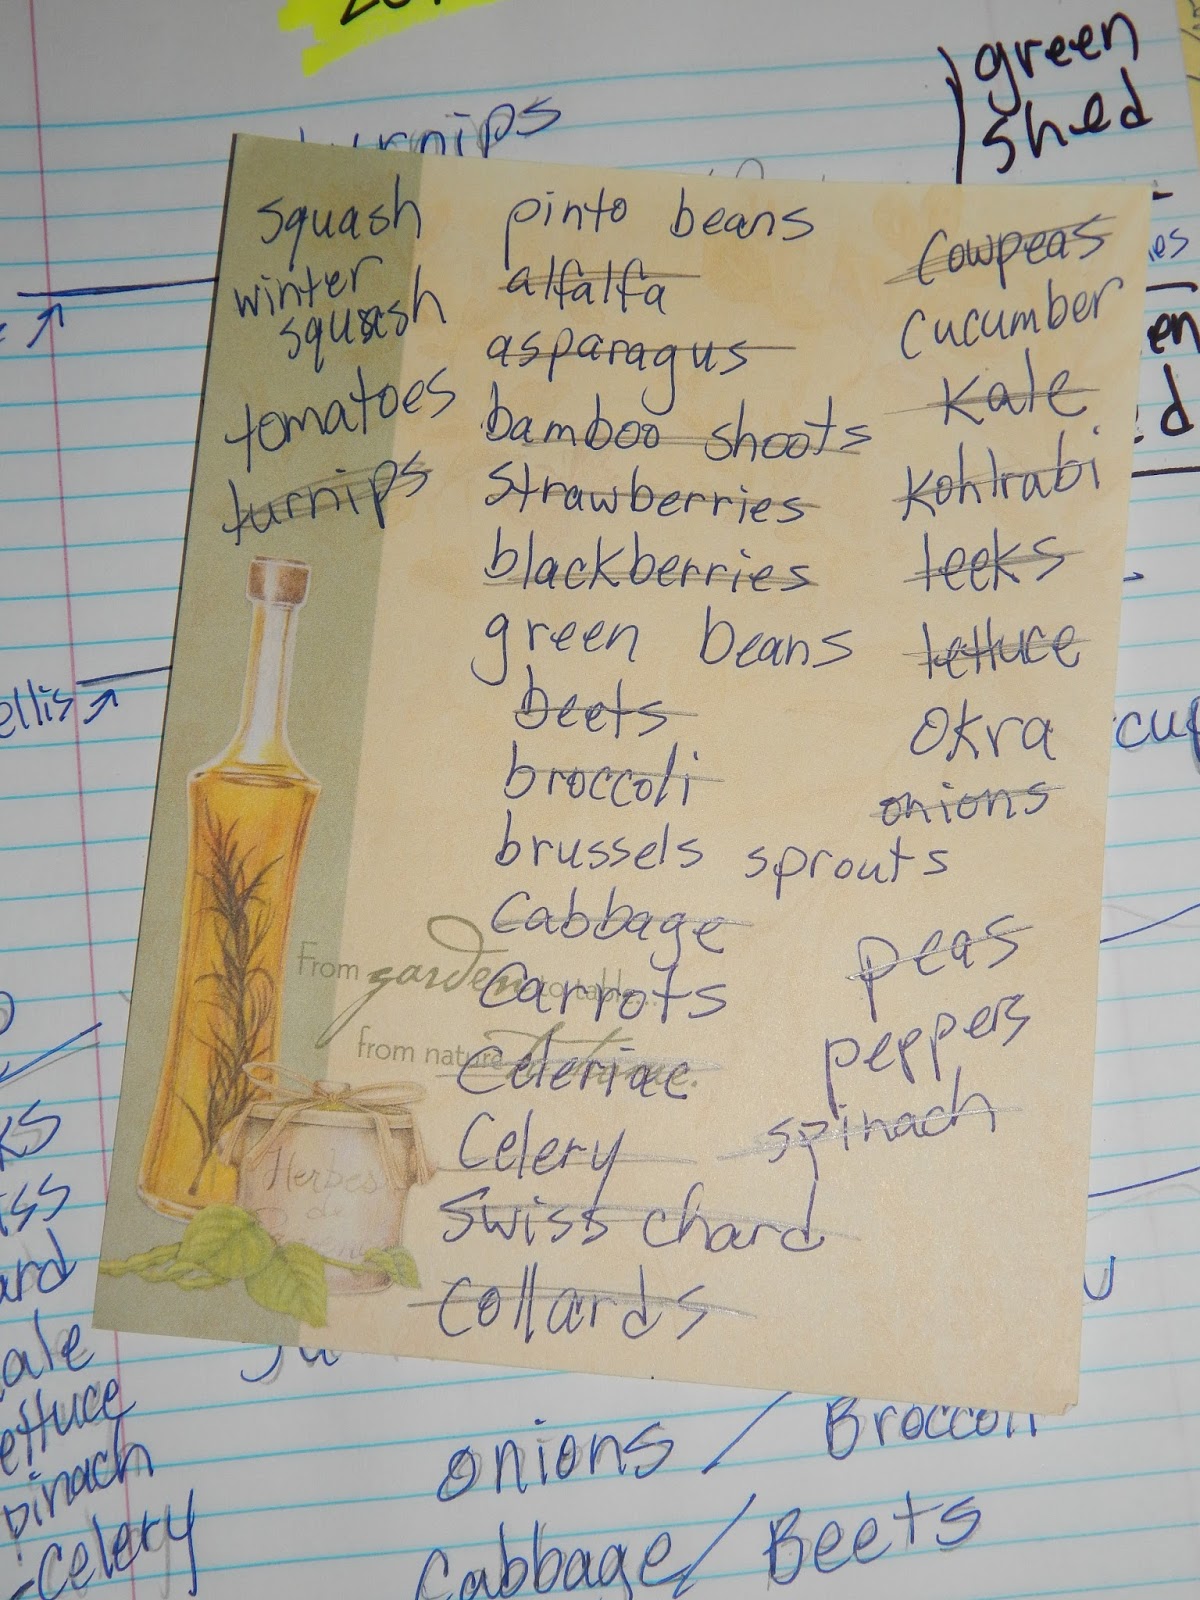 green
shed
turnips
squash
winter
squash
tomatoes
turnips
pinto beans
alfalfa
asparagus
bamboo shoots
strawberries
blackberries
green beans
beets
broccoli
brussels sprouts
Cabbage
Carrots
Celeriac
Celery
Swiss chard
Collards
Cowpeas
Cucumber
Kale
Kohlrabi
leeks
lettuce
Okra
onions
peas
peppers
spinach
From garden to table...
from nature
Herbes
de
ellis
cup
ks
iss
ard
ale
ettuce
pinach
-Celery
onions / Broccoli
Cabbage / Beets